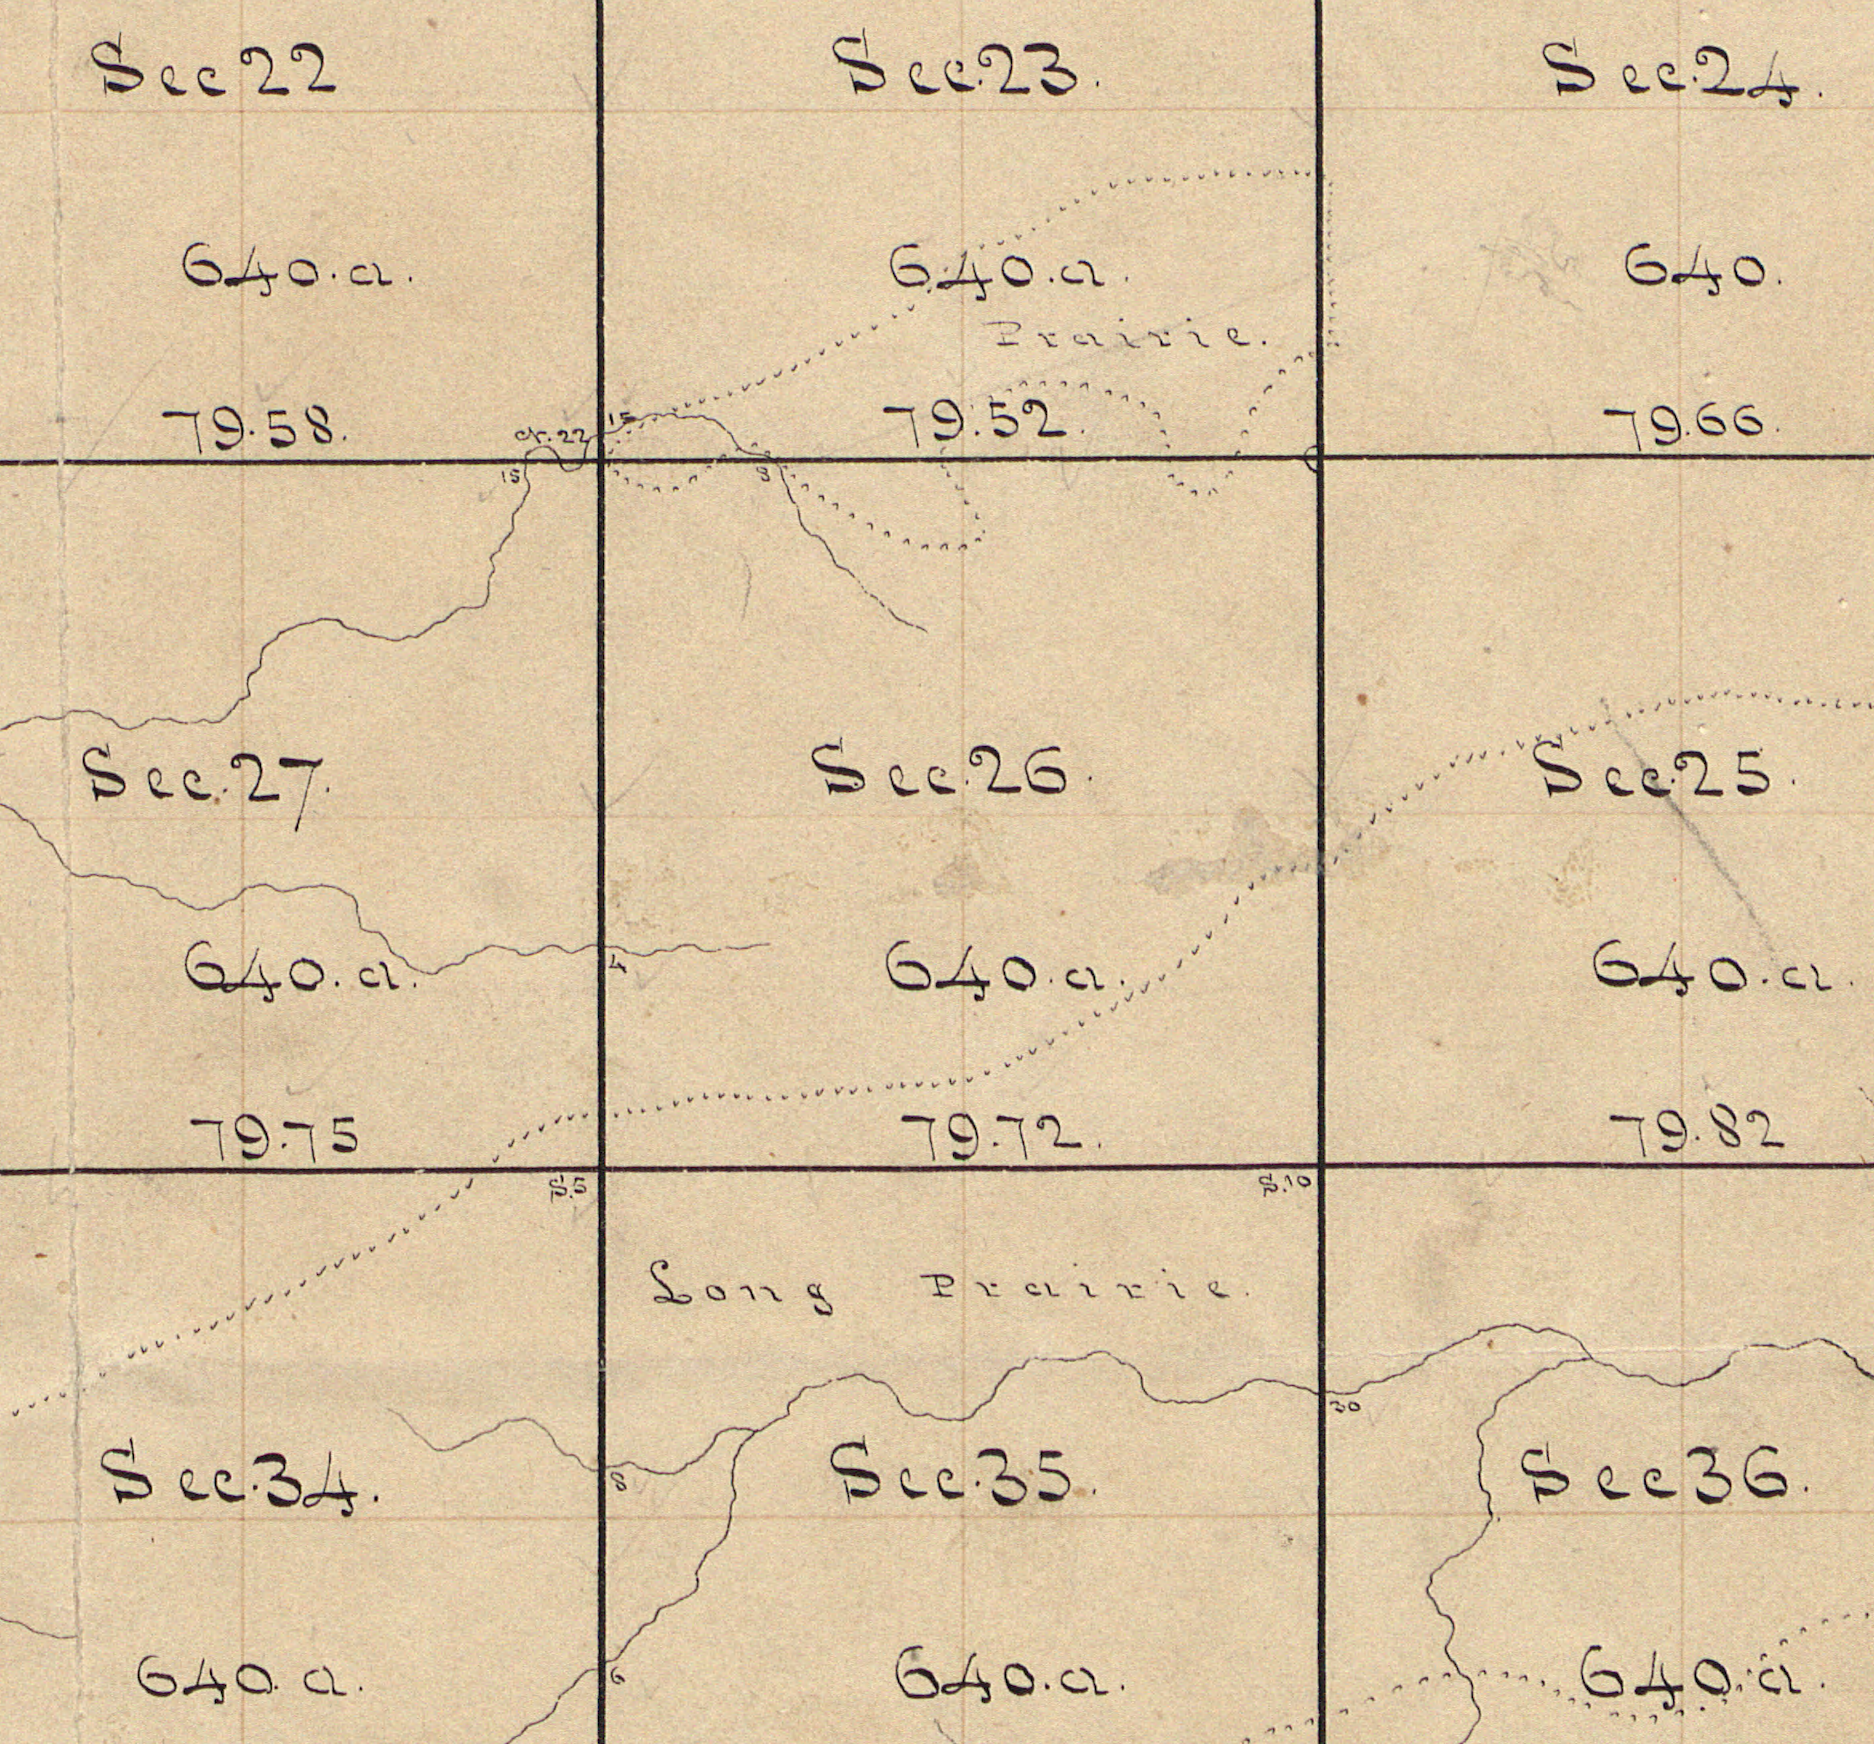 Sec 22 Sec. 23. Sec. 24.
640. a. 640. a. 640.
Prairie.
79.58. 79.52. 79.66.
cr. 22 15
15 3
Sec. 27. Sec. 26. Sec. 25.
640. a. 640. a. 640. a.
4
79.75 79.72. 79.82
S. 5 S. 10
Long Prairie.
30
Sec. 34. Sec. 35. Sec 36.
8
640. a. 640. a. 640. a.
6